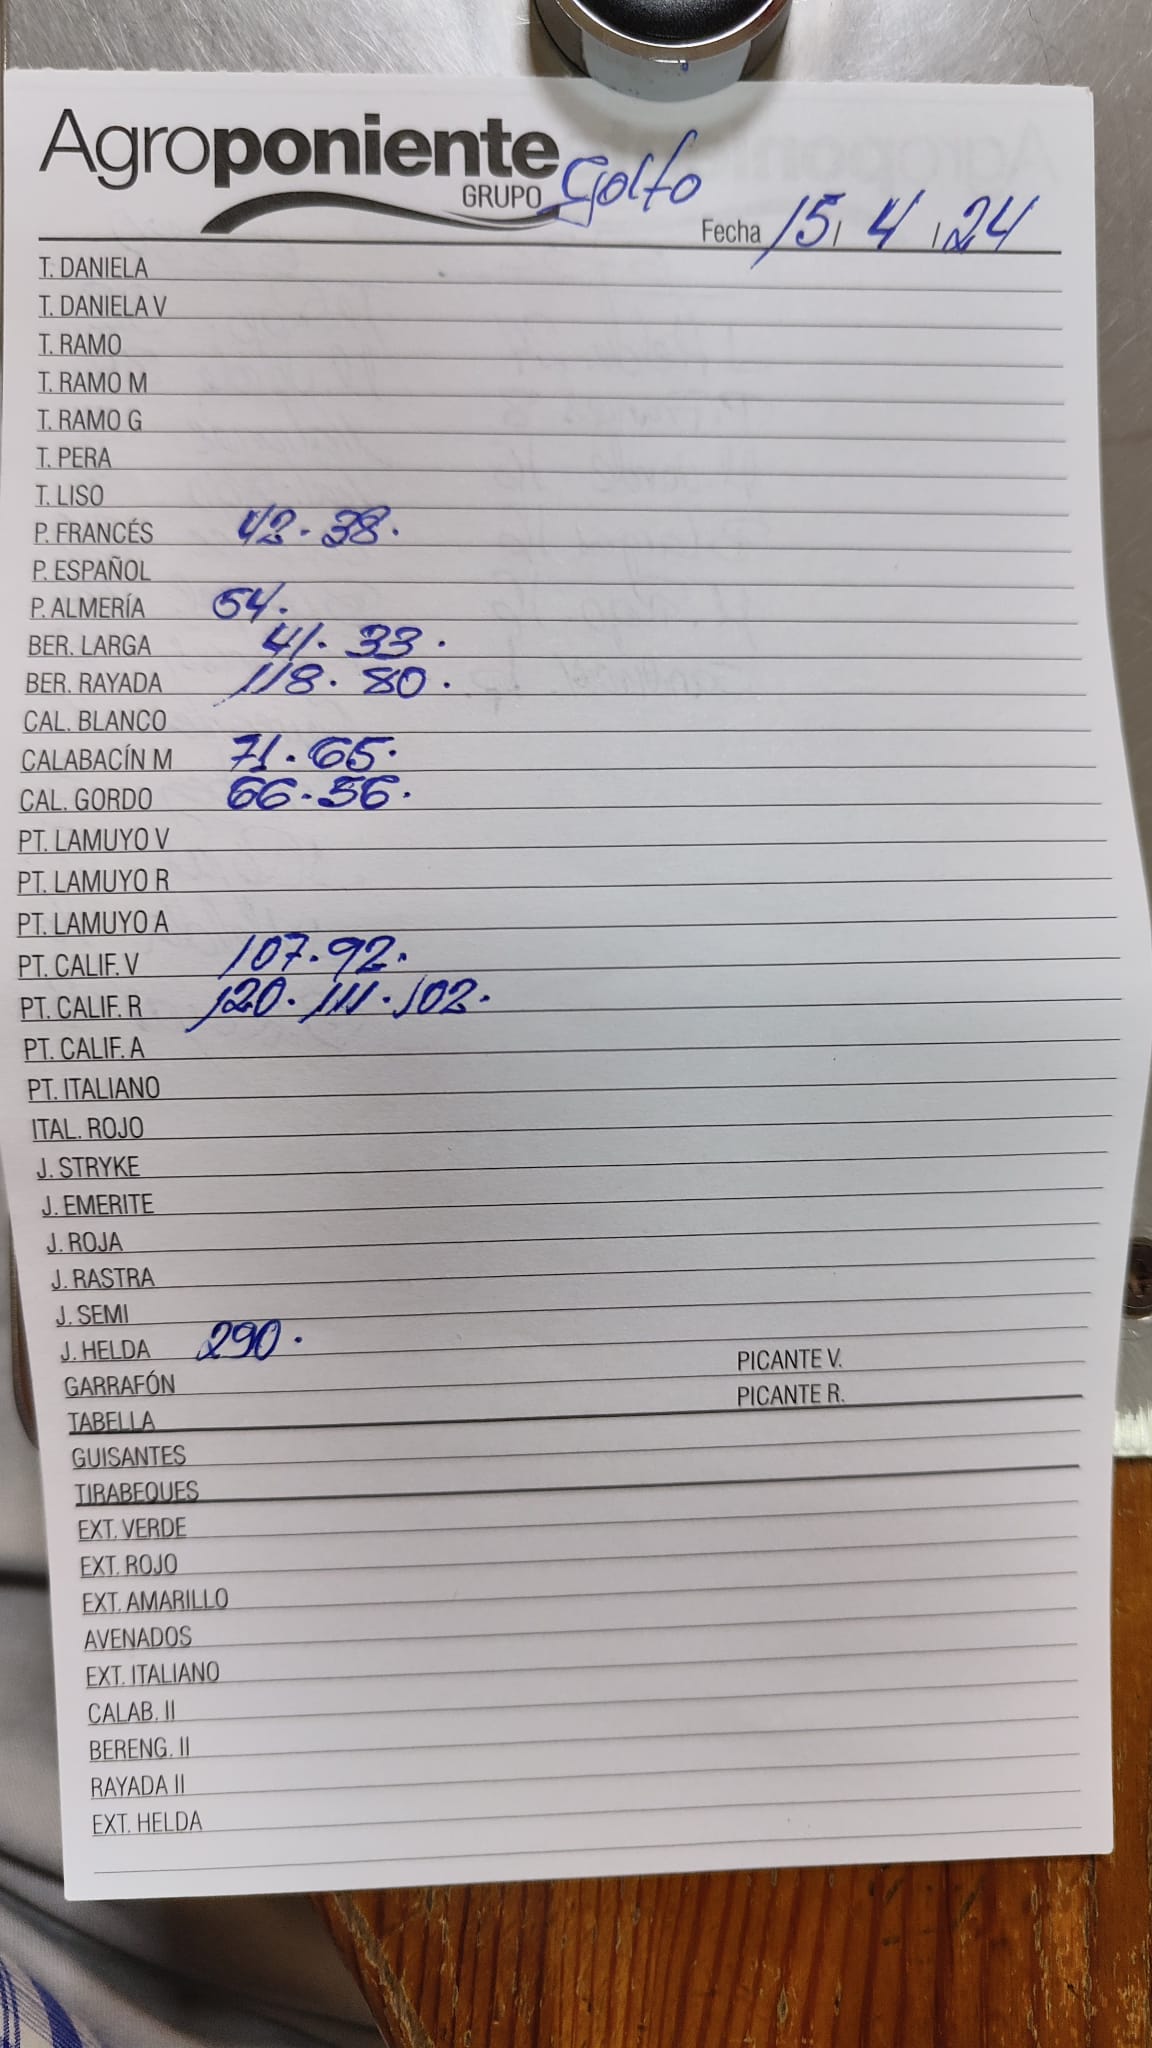 Agroponiente
GRUPO Golfo
Fecha 15 / 4 / 24
T. DANIELA
T. DANIELA V
T. RAMO
T. RAMO M
T. RAMO G
T. PERA
T. LISO
P. FRANCÉS 42. 38.
P. ESPAÑOL
P. ALMERÍA 54.
BER. LARGA 41. 33.
BER. RAYADA 118. 80.
CAL. BLANCO
CALABACÍN M 71. 65.
CAL. GORDO 66. 56.
PT. LAMUYO V
PT. LAMUYO R
PT. LAMUYO A
PT. CALIF. V 107. 92.
PT. CALIF. R 120. 111. 102.
PT. CALIF. A
PT. ITALIANO
ITAL. ROJO
J. STRYKE
J. EMERITE
J. ROJA
J. RASTRA
J. SEMI
J. HELDA 290.
GARRAFÓN PICANTE V.
TABELLA PICANTE R.
GUISANTES
TIRABEQUES
EXT. VERDE
EXT. ROJO
EXT. AMARILLO
AVENADOS
EXT. ITALIANO
CALAB. II
BERENG. II
RAYADA II
EXT. HELDA